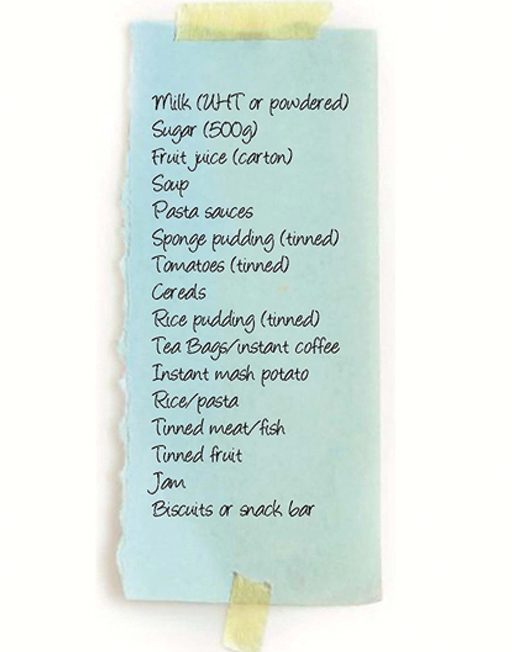 Milk (UHT or powdered)
Sugar (500g)
Fruit juice (carton)
Soup
Pasta sauces
Sponge pudding (tinned)
Tomatoes (tinned)
Cereals
Rice pudding (tinned)
Tea Bags/instant coffee
Instant mash potato
Rice/pasta
Tinned meat/fish
Tinned fruit
Jam
Biscuits or snack bar